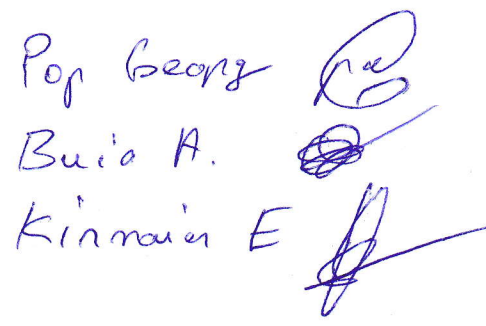 Pop Georg
Buia A.
Kinnaier E